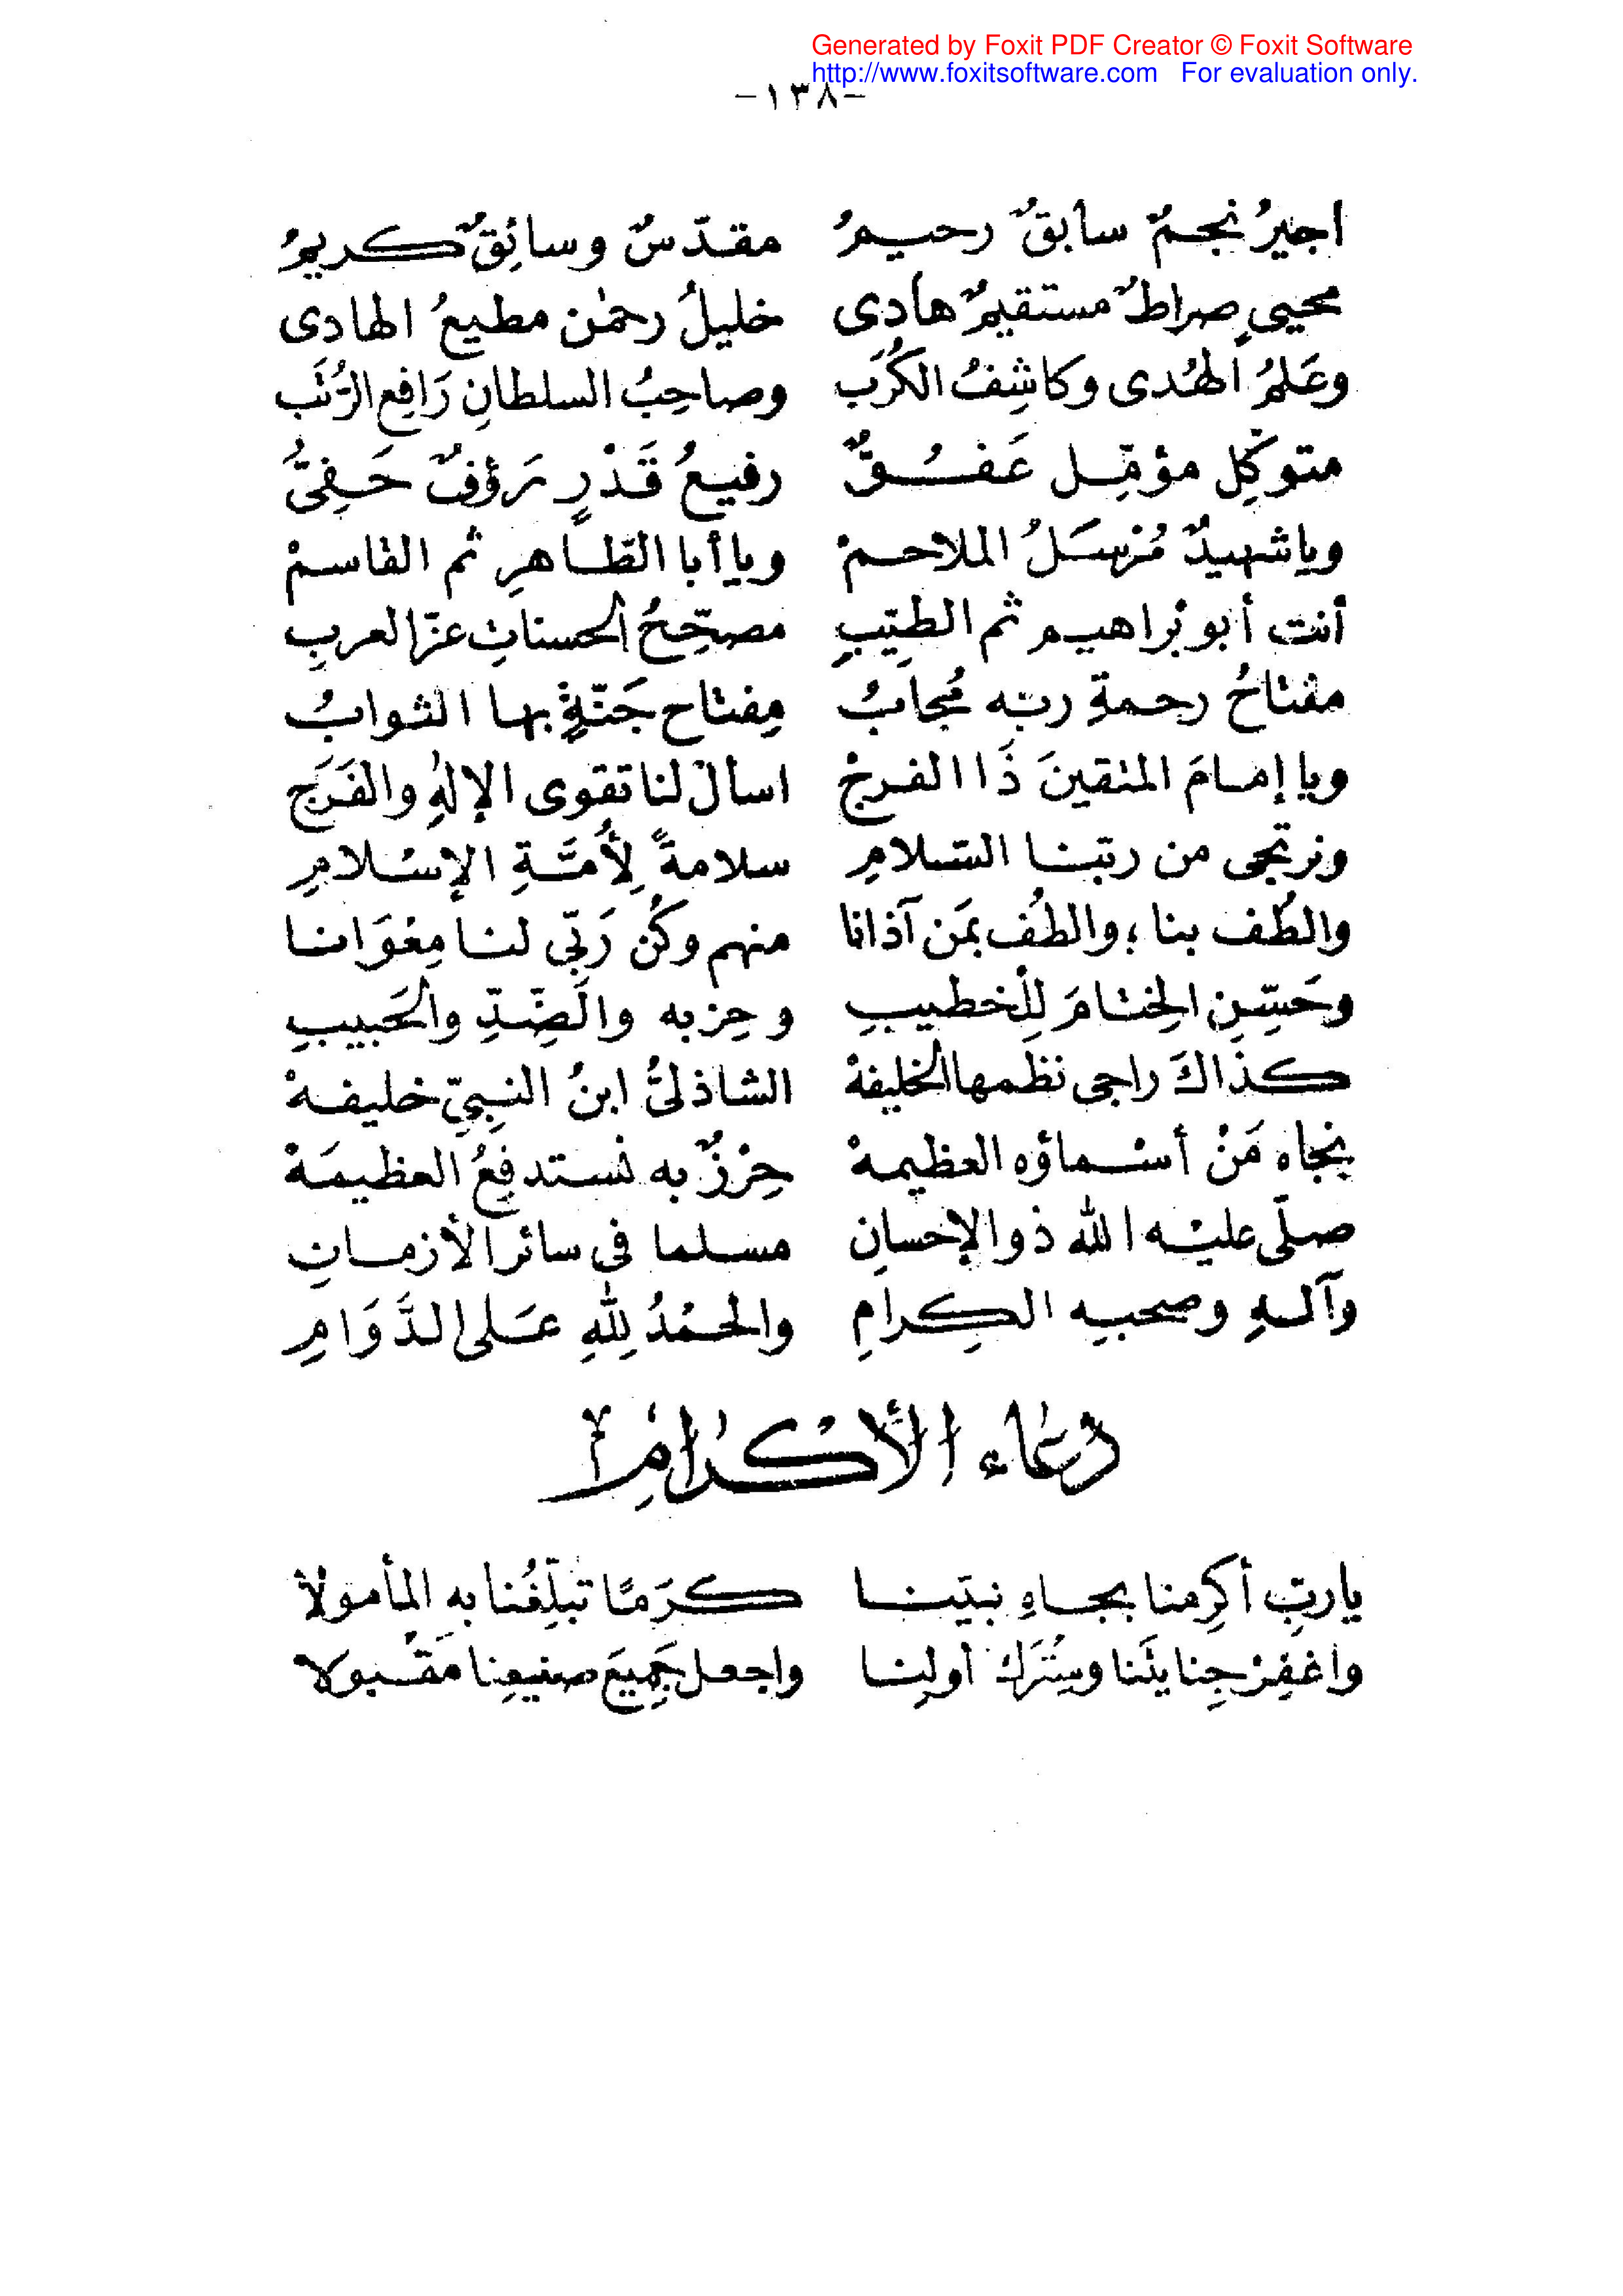 Generated by Foxit PDF Creator © Foxit Software
http://www.foxitsoftware.com For evaluation only.
-١٣٨-
اجيرُ نجمٌ سابقٌ رحيمُ مقدّسٌ وسائِقٌ كريمُ
محيي صراطٌ مستقيمٌ هادى خليلُ رحمٰن مطيعُ الهادى
وعَلمُ الهُدى وكاشِفُ الكُرَب وصاحِبُ السلطانِ رَافِع الرُّتَب
متوكِّل مؤمّل عَفُوٌّ رفيعُ قَدْرٍ رَؤفٌ حَفِىُّ
وياشهيدٌ مُرْسَلُ الملاحمْ وياأبا الطّاهرِ ثم القاسمْ
أنت أبو بْراهيم ثم الطيّبِ مصحّحُ الحسناتِ عزّ العربِ
مفتاحُ رحمةِ ربّه مُجابُ مِفتاح جَنّةٍ بها الثوابُ
ويا إمامَ المتقينَ ذَا الفرجْ اسألْ لنا تقوى الإلٰهِ والفَرَج
ونرتجى من ربّنا السّلامِ سلامةً لِأُمَّةِ الإسْلامِ
والطُف بنا ، والطُف بمَن آذانا منهم وكُن رَبّى لنا مِعْوَانا
وحَسِّنِ الخِتامَ لِلْخطيبِ وحِزبه والضِّدِّ والحَبيبِ
كذاكَ راجى نظمها الخليفهْ الشاذلىُّ ابنُ النبِيّ خليفهْ
بجاه مَنْ أسْماؤه العظيمهْ حِرْزٌ به نستدفِعُ العظيمَهْ
صلّى عليْه الله ذو الإحسانِ مسلما فى سائر الأزمانِ
وآلهِ وصحبِه الكِرامِ والحمْدُ لِلّهِ عَلى الدَّوَامِ
دعاء الأكرام
ياربّ أكرِمنا بجاهِ نبيّنا كرَمًا تبلّغُنا به المأمولا
واغفِرْ جِنايتَنا وسِتْرَك اولِنا واجعل جَمِيعَ صنيعِنا مَقْبولا